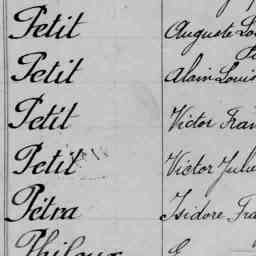 Petit Auguste
Petit Alain Louis
Petit Victor
Petit Victor
Pétra Isidore